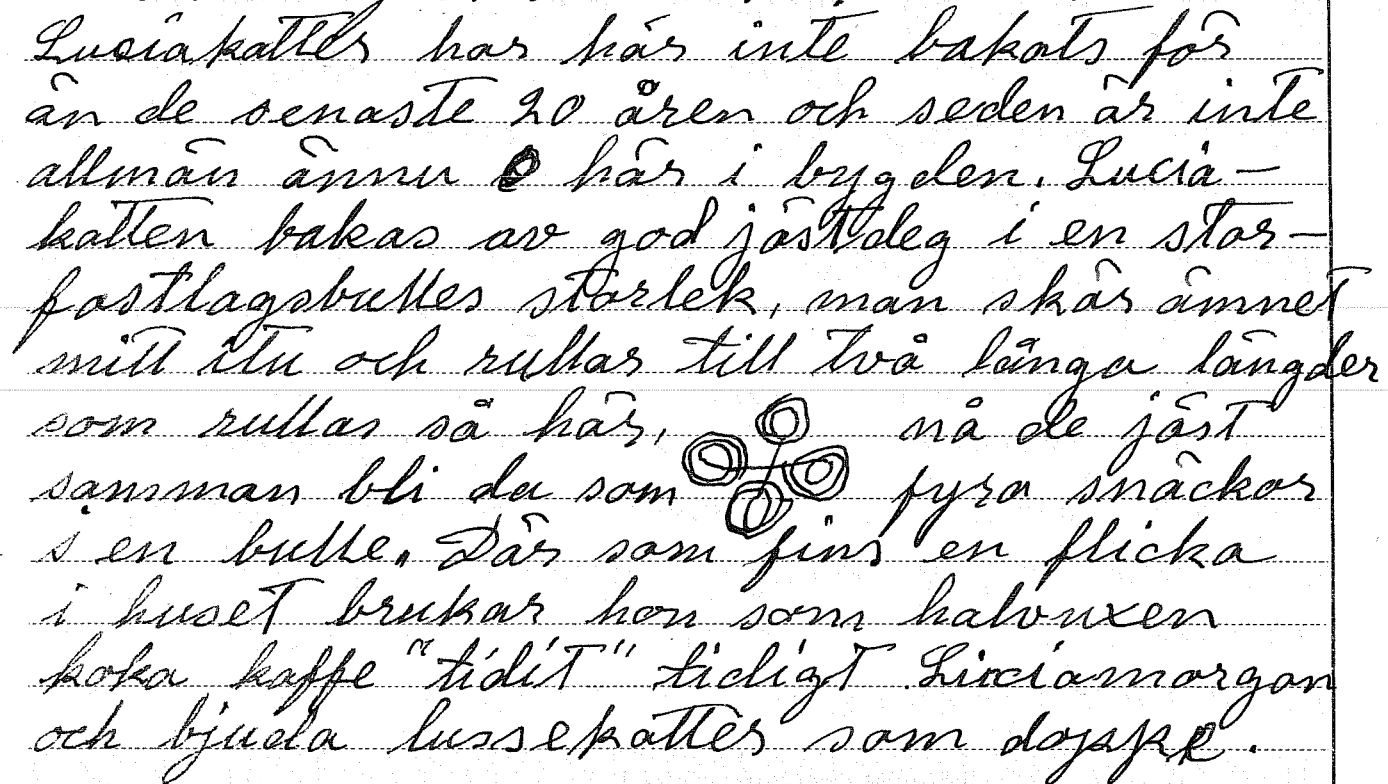 Lusiakatter har här inte bakats för
än de senaste 20 åren och seden är inte
allmän ännu här i bygden. Lucia-
katten bakas av god jästdeg i en stor-
fastlagsbulles storlek, man skär ämnet
mitt itu och rullar till två långa längder
som rullas så här, nå de jäst
samman bli da som fyra snäckor
i en bulle. Där som fins en flicka
i huset brukar hon som halvuxen
koka kaffe "tidit" tidigt Luciamorgon
och bjuda lussekatter som doppe.